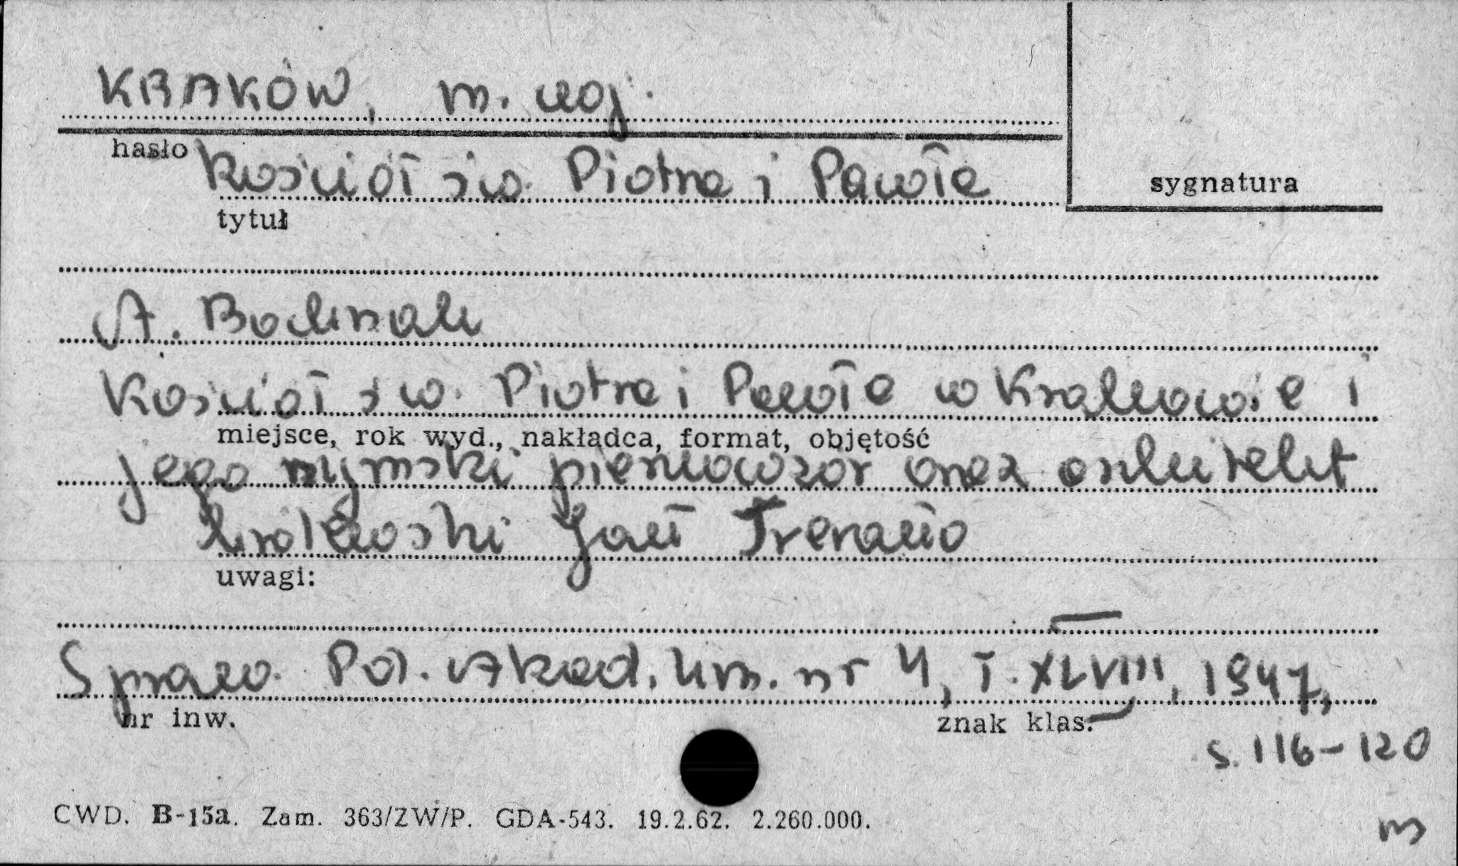 KRAKÓW, m. woj.
hasło
sygnatura
Kościół św. Piotra i Pawła
tytuł
A. Bochnak
Kościół św. Piotra i Pawła w Krakowie i
miejsce, rok wyd., nakładca, format, objętość
jego rzymski pierwowzór oraz architekt
królewski Jan Trevano
uwagi:
Spraw. Pol. Akad. Um. nr 4, T. XLVIII, 1947,
nr inw.
znak klas.
s. 116-120
CWD. B-15a. Zam. 363/ZW/P. GDA-543. 19.2.62. 2.260.000.
m